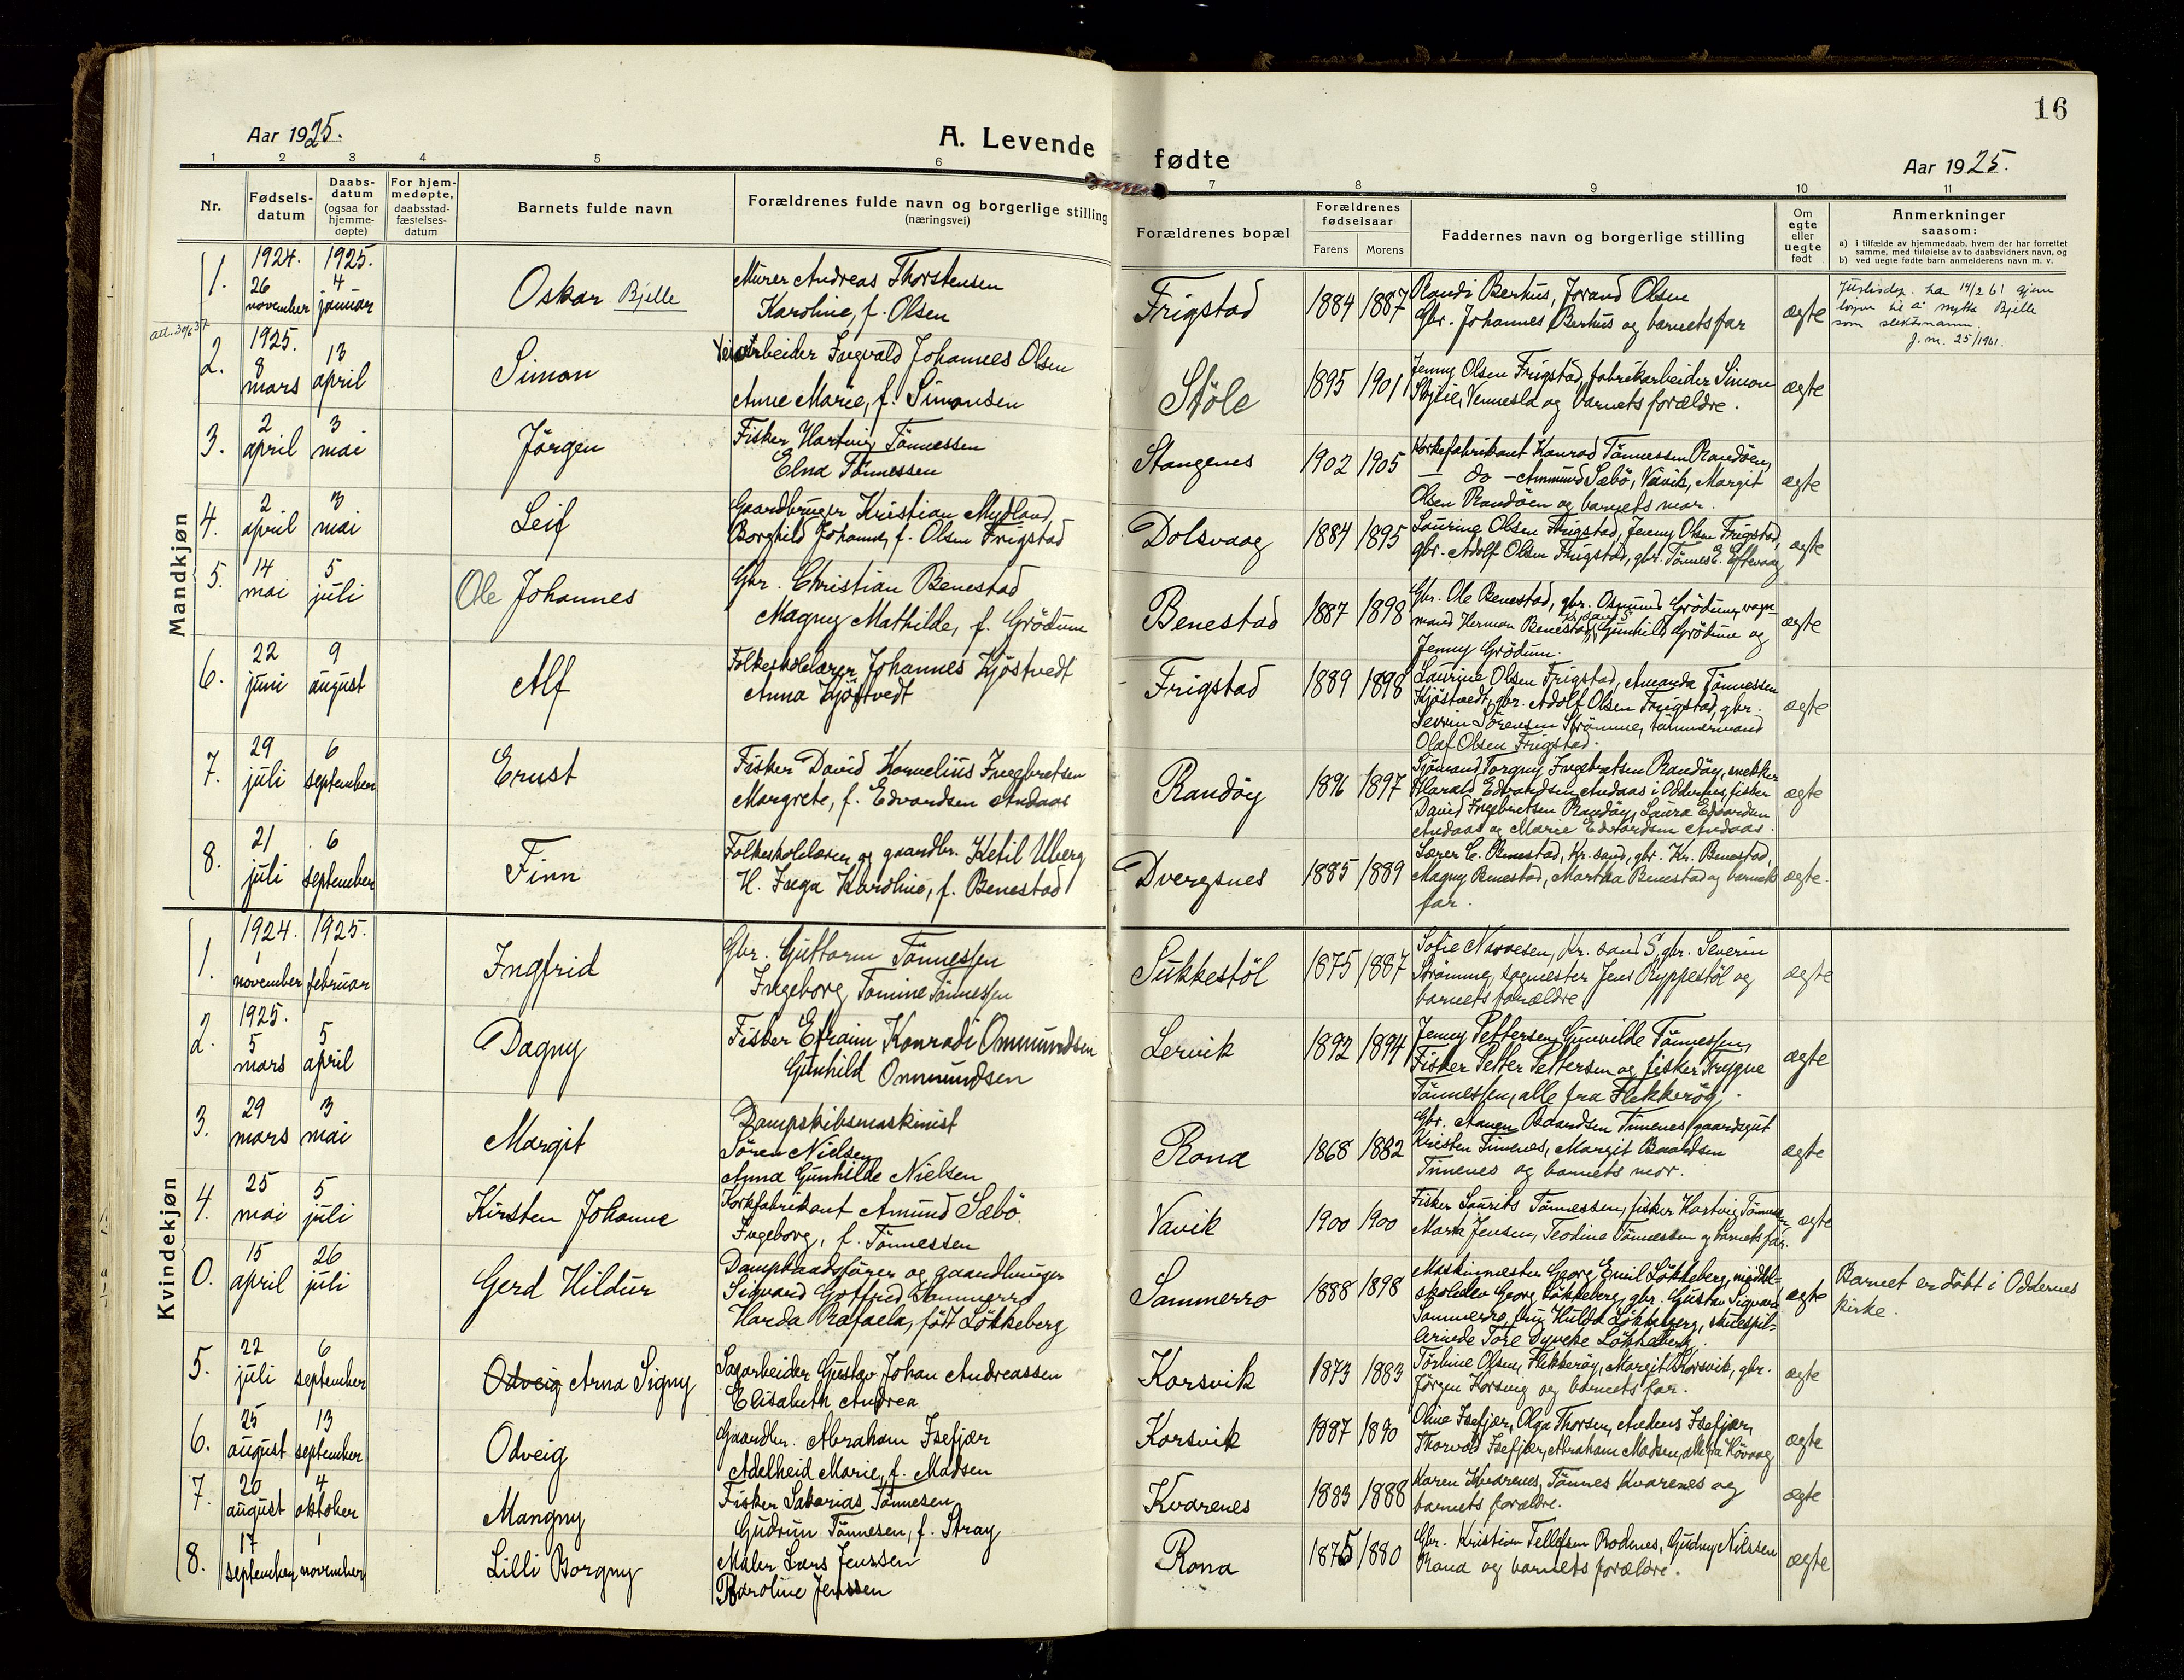 16
Aar 1925.
A. Levende fødte
Aar 1925.
1 2 3 4 5 6 7 8 9 10 11
Nr.
Fødsels-
datum
Daabs-
datum
(ogsaa for
hjemme-
døpte)
For hjem-
medøpte,
daabsstad-
fæstelses-
datum
Barnets fulde navn
Forældrenes fulde navn og borgerlige stilling
(næringsvei)
Forældrenes bopæl
Forældrenes
fødselsaar
Farens Morens
Faddernes navn og borgerlige stilling
Om
egte
eller
uegte
født
Anmerkninger
saasom:
a) i tilfælde av hjemmedaab, hvem der har forrettet
samme, med tilføielse av to daabsvidners navn, og
b) ved uegte fødte barn anmelderens navn m. v.
Mandkjøn
1. 1924. 26 november 1925. 4 januar
Oskar Bjelle
Murer Andreas Thorstensen
Karoline, f. Olsen
Frigstad 1884 1887
Randi Berhus, Jorand Olsen
Gbr. Johannes Berhus og barnets far
ægte
Justisdep. har 14/2 61 gjeve
løyve til å nytte Bjelle
som slektsnamn.
J.nr. 25/1961.
att. 30/6 37
2. 1925. 8 mars 13 april
Simon
Veiarbeider Ingvald Johannes Olsen
Anne Marie, f. Simonsen
Støle 1895 1901
Jenny Olsen Frigstad, fabrikarbeider Simon
Vennesla og barnets forældre.
ægte
3. 2 april 3 mai
Jørgen
Fisker Hartvig Tønnessen
Elna Tønnessen
Stangenes 1902 1905
Korkefabrikant Konrad Tønnessen Randøen,
– do – Ammund Sæbø, Vavik, Margit
Olsen Randøen og barnets mor.
ægte
4. 2 april 3 mai
Leif
Gaardbruger Kristian Mydland
Borghild Johanne, f. Olsen Frigstad
Dolsvaag 1884 1895
Laurine Olsen Frigstad, Jenny Olsen Frigstad,
gbr. Adolf Olsen Frigstad, gbr. Tønnes E. Eftevaag
ægte
5. 14 mai 5 juli
Ole Johannes
Gbr. Christian Benestad
Magny Mathilde, f. Grødum
Benestad 1887 1898
Gbr. Ole Benestad, gbr. Osmund Grødum, vogn-
mand Herman Benestad, Kr.sand S, Gunhild Grødum og
Jenny Grødum.
ægte
6. 22 juni 9 august
Alf
Folkeskolelærer Johannes Kjøstvedt
Anna Kjøstvedt
Frigstad 1889 1898
Laurine Olsen Frigstad, Amanda Tønnessen
Kjøstvedt, gbr. Adolf Olsen Frigstad, gbr.
Severin Sørensen Strømme, tømmermand
Olaf Olsen Frigstad.
ægte
7. 29 juli 6 september
Ernst
Fisker David Kornelius Ingebretsen
Margrete, f. Edvardsen Andaas
Randøy 1896 1897
Sjømand Torgny Ingebretsen Randøy, snekker
Harald Edvardsen Andaas i Oddernes, fisker
David Ingebretsen Randøy, Laura Edvardsen
Andaas og Marie Edvardsen Andaas.
ægte
8. 21 juli 6 september
Finn
Folkeskolelærer og gaardbr. Ketil Uberg
H. Inga Karoline, f. Benestad
Dvergsnes 1885 1889
Lærer C. Benestad, Kr.sand, gbr. Kr. Benestad,
Magny Benestad, Martha Benestad og barnets
far.
ægte.
Kvindekjøn
1. 1924. 1 november 1925. 1 februar
Ingfrid
Gbr. Guttorm Tønnessen
Ingeborg Tomine Tønnessen
Sukkestøl 1875 1887
Sofie Narvesen, Kr. sand S, gbr. Severin
Strømme, sogmester Jens Ryppestøl og
barnets forældre
ægte
2. 1925. 5 mars 5 april
Dagny
Fisker Efraim Konradi Ommundsen
Gunhild Ommundsen
Lervik 1892 1894
Jenny Pettersen, Gunvilde Tønnessen,
Fisker Petter Pettersen og fisker Trygve
Tønnessen, alle fra Flekkerøy.
ægte
3. 29 mars 3 mai
Margit
Dampskibsmaskinist
Søren Nielsen
Anna Gunhilde Nielsen
Rona 1868 1882
Gbr. Aanen Baardsen Timenes, gaardsgut
Kristen Timenes, Margit Baardsen
Timenes og barnets mor.
ægte
4. 25 mai 5 juli
Kirsten Johanne
Korkfabrikant Amund Sæbø
Ingeborg, f. Tønnessen
Vavik 1900 1900
Fisker Laurits Tønnessen, fisker Hartvig Tønnessen,
Marta Jensen, Teodine Tønnessen og barnets far.
ægte
0. 15 april 26 juli
Gerd Hildur
Dampbaadsfører og gaardbruger
Sigvard Gotfred Sommerro
Harda Rafaela, født Løkkeberg
Sommerro 1888 1898
Maskinmester Georg Emil Løkkeberg, middel-
skoleelev Georg Løkkeberg, gbr. Gustav Sigvard
Sommerro, fru Hulda Løkkeberg, skuespil-
lerinde Tore Dyveke Løkkeberg.
ægte
Barnet er døbt i Oddernes
kirke.
5. 22 juli 6 september
Odveig Arna Signy
Sagarbeider Gustav Johan Andreassen
Elisabeth Andrea
Korsvik 1873 1883
Torbine Olsen, Flekkerøy, Margit Korsvik, gbr.
Jørgen Korsvig og barnets far.
ægte
6. 25 august 13 september
Odveig
Gaardbr. Abraham Isefjær
Adelheid Marie, f. Madsen
Korsvik 1887 1890
Oline Isefjær, Olga Thorsen, Anders Isefjær,
Thorvald Isefjær, Abraham Madsen, alle fra Høvaag
ægte
7. 26 august 4 oktober
Mangny
Fisker Sakarias Tønnesen
Gudrun Tønnesen, f. Stray
Kvarenes 1883 1888
Karen Kvarenes, Tønnes Kvarenes og
barnets forældre.
ægte
8. 17 september 1 november
Lilli Borgny
Maler Lars Jenssen
Karoline Jenssen
Rona 1875 1880
Gbr. Kristian Tellefsen Rodenes, Gudny Nilssen
Rona og barnets forældre.
ægte